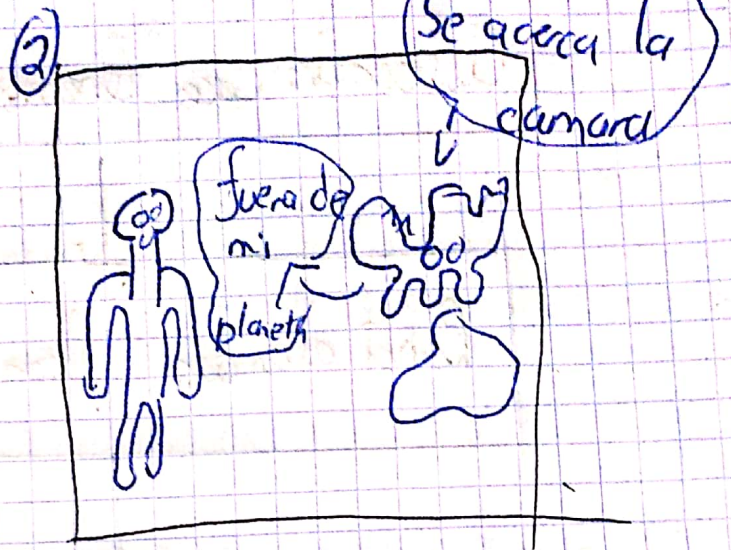 2
Se acerca la
camara
fuera de
mi
planeta